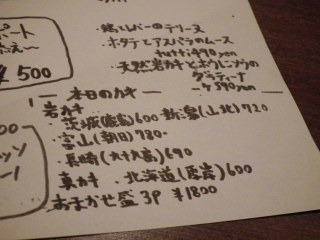 ポート
添え〜
¥500
・鶏レバーのテリーヌ
・ホタテとアスパラのムース
tutti 490yen
・天然岩カキとホウレンソウの
グラティーナ
〜ケ590yen
— 本日のカキ —
岩カキ
・茨城(鹿島)600 新潟(山北)720
・富山(朝日)780-
・長崎(九十九島)690
真カキ ・北海道(厚岸)600
おまかせ盛 3P ¥1800